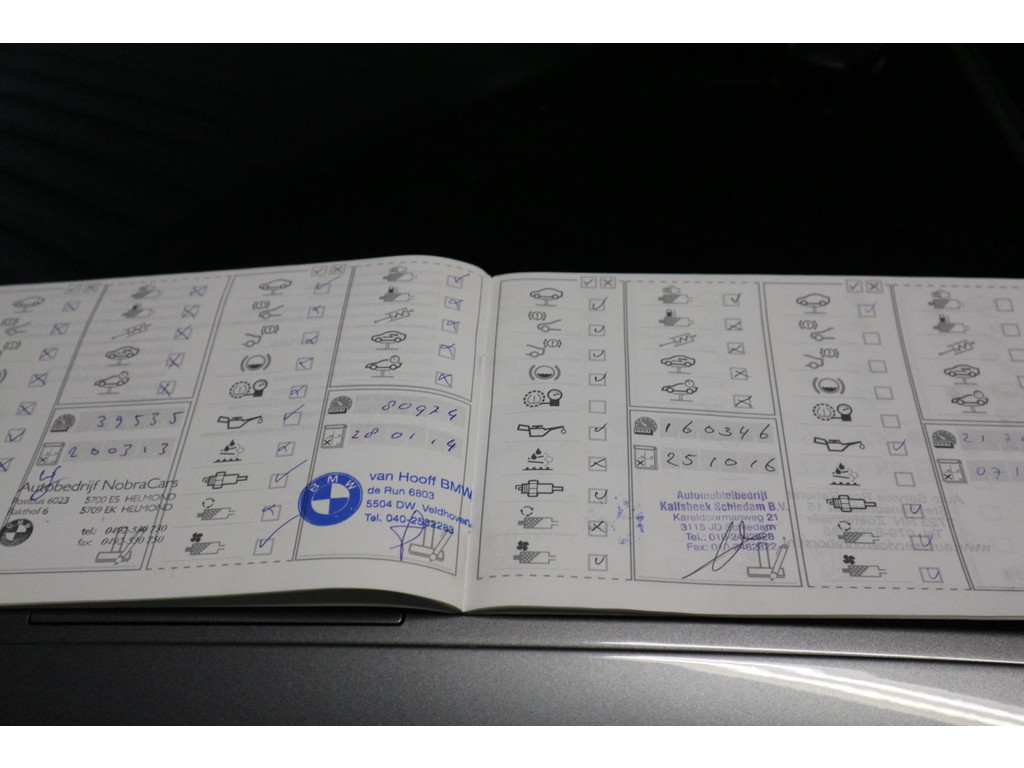 39535
200313
Autobedrijf NobraCars
Postbus 6023 5700 ES HELMOND
5709 EK HELMOND
tel:
fax:
80974
280114
BMW
van Hooff BMW
de Run 6803
5504 DW Veldhoven
Tel. 040-2532283
160346
251016
Automobielbedrijf
Kalfsbeek Schiedam B.V.
Kareldoormanweg 21
3115 JD Schiedam
Tel.:
Fax:
21
071